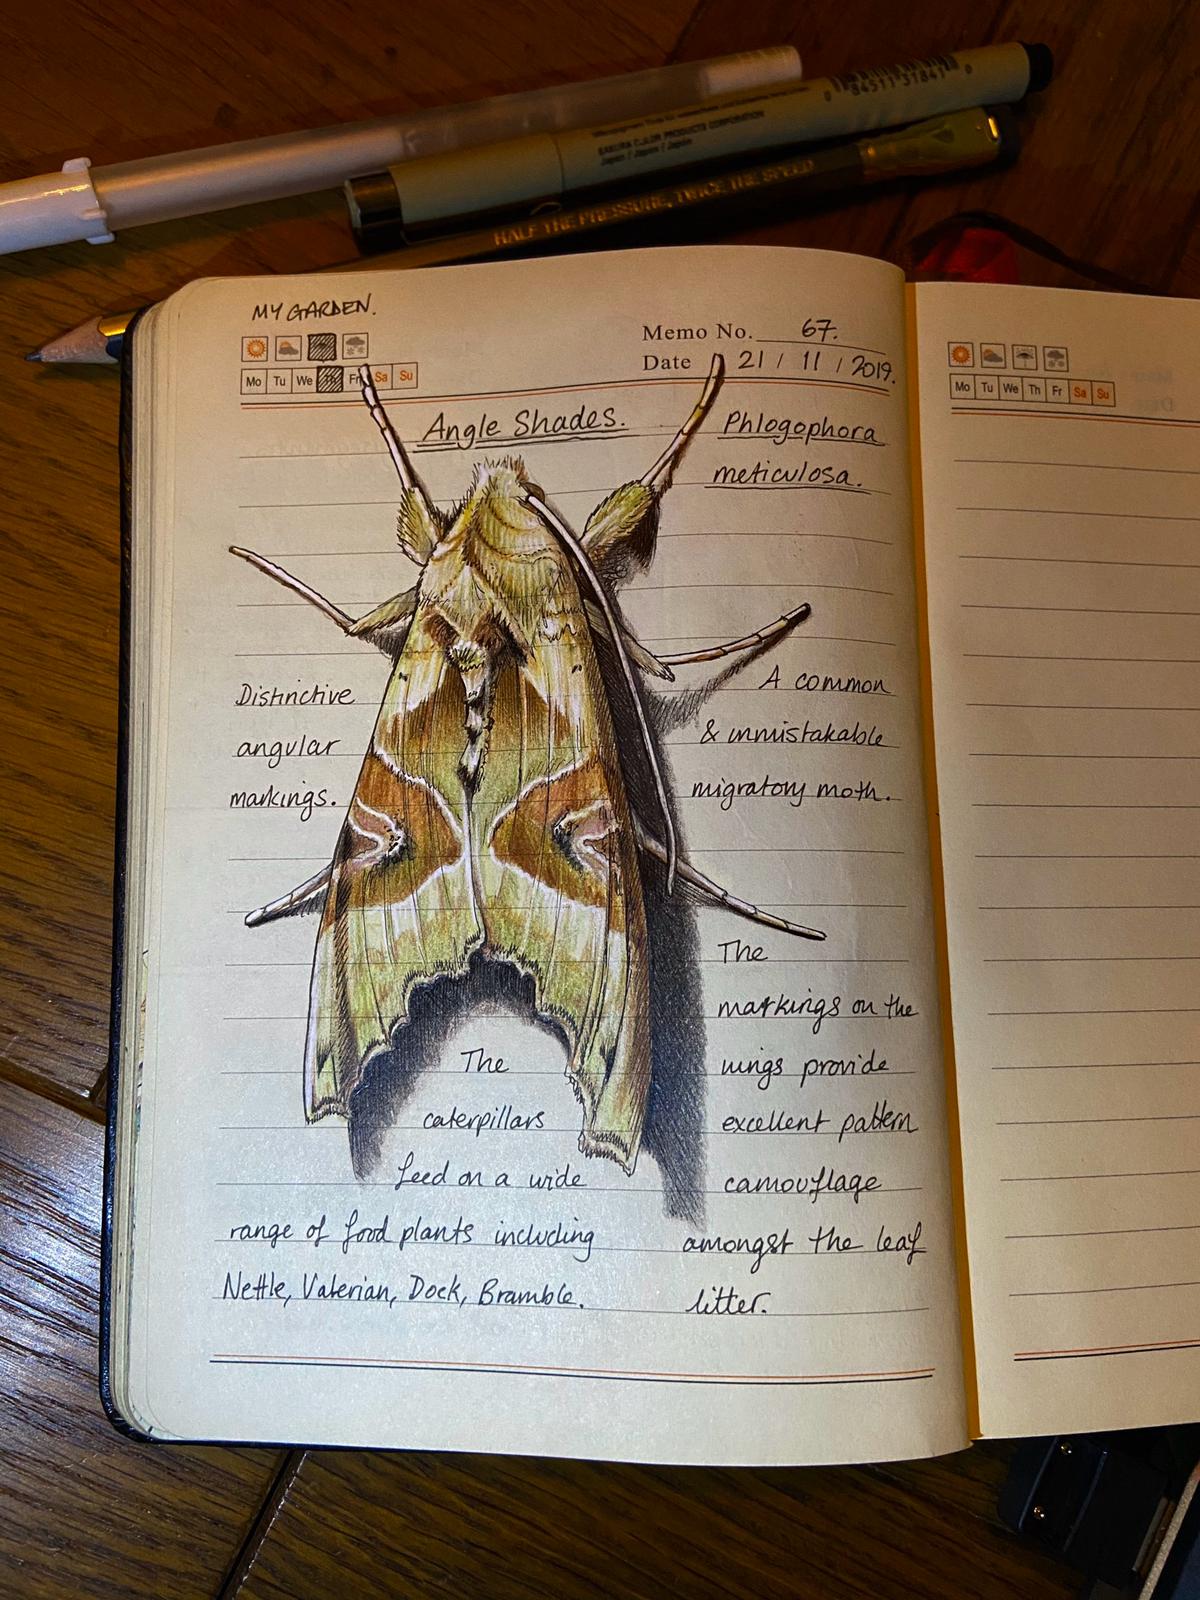 SAKURA COLOR PRODUCTS CORPORATION
Japan / Japan / Japón
0 84511 31841 0
HALF THE PRESSURE, TWICE THE SPEED
MY GARDEN.
Memo No. 67.
Date 21 / 11 / 2019.
Mo Tu We Th Fr Sa Su
Angle Shades.
Phlogophora
meticulosa.
Distinctive
angular
markings.
A common
& unmistakable
migratory moth.
The
markings on the
wings provide
excellent pattern
camouflage
amongst the leaf
litter.
The
caterpillars
feed on a wide
range of food plants including
Nettle, Valerian, Dock, Bramble.
Mo Tu We Th Fr Sa Su